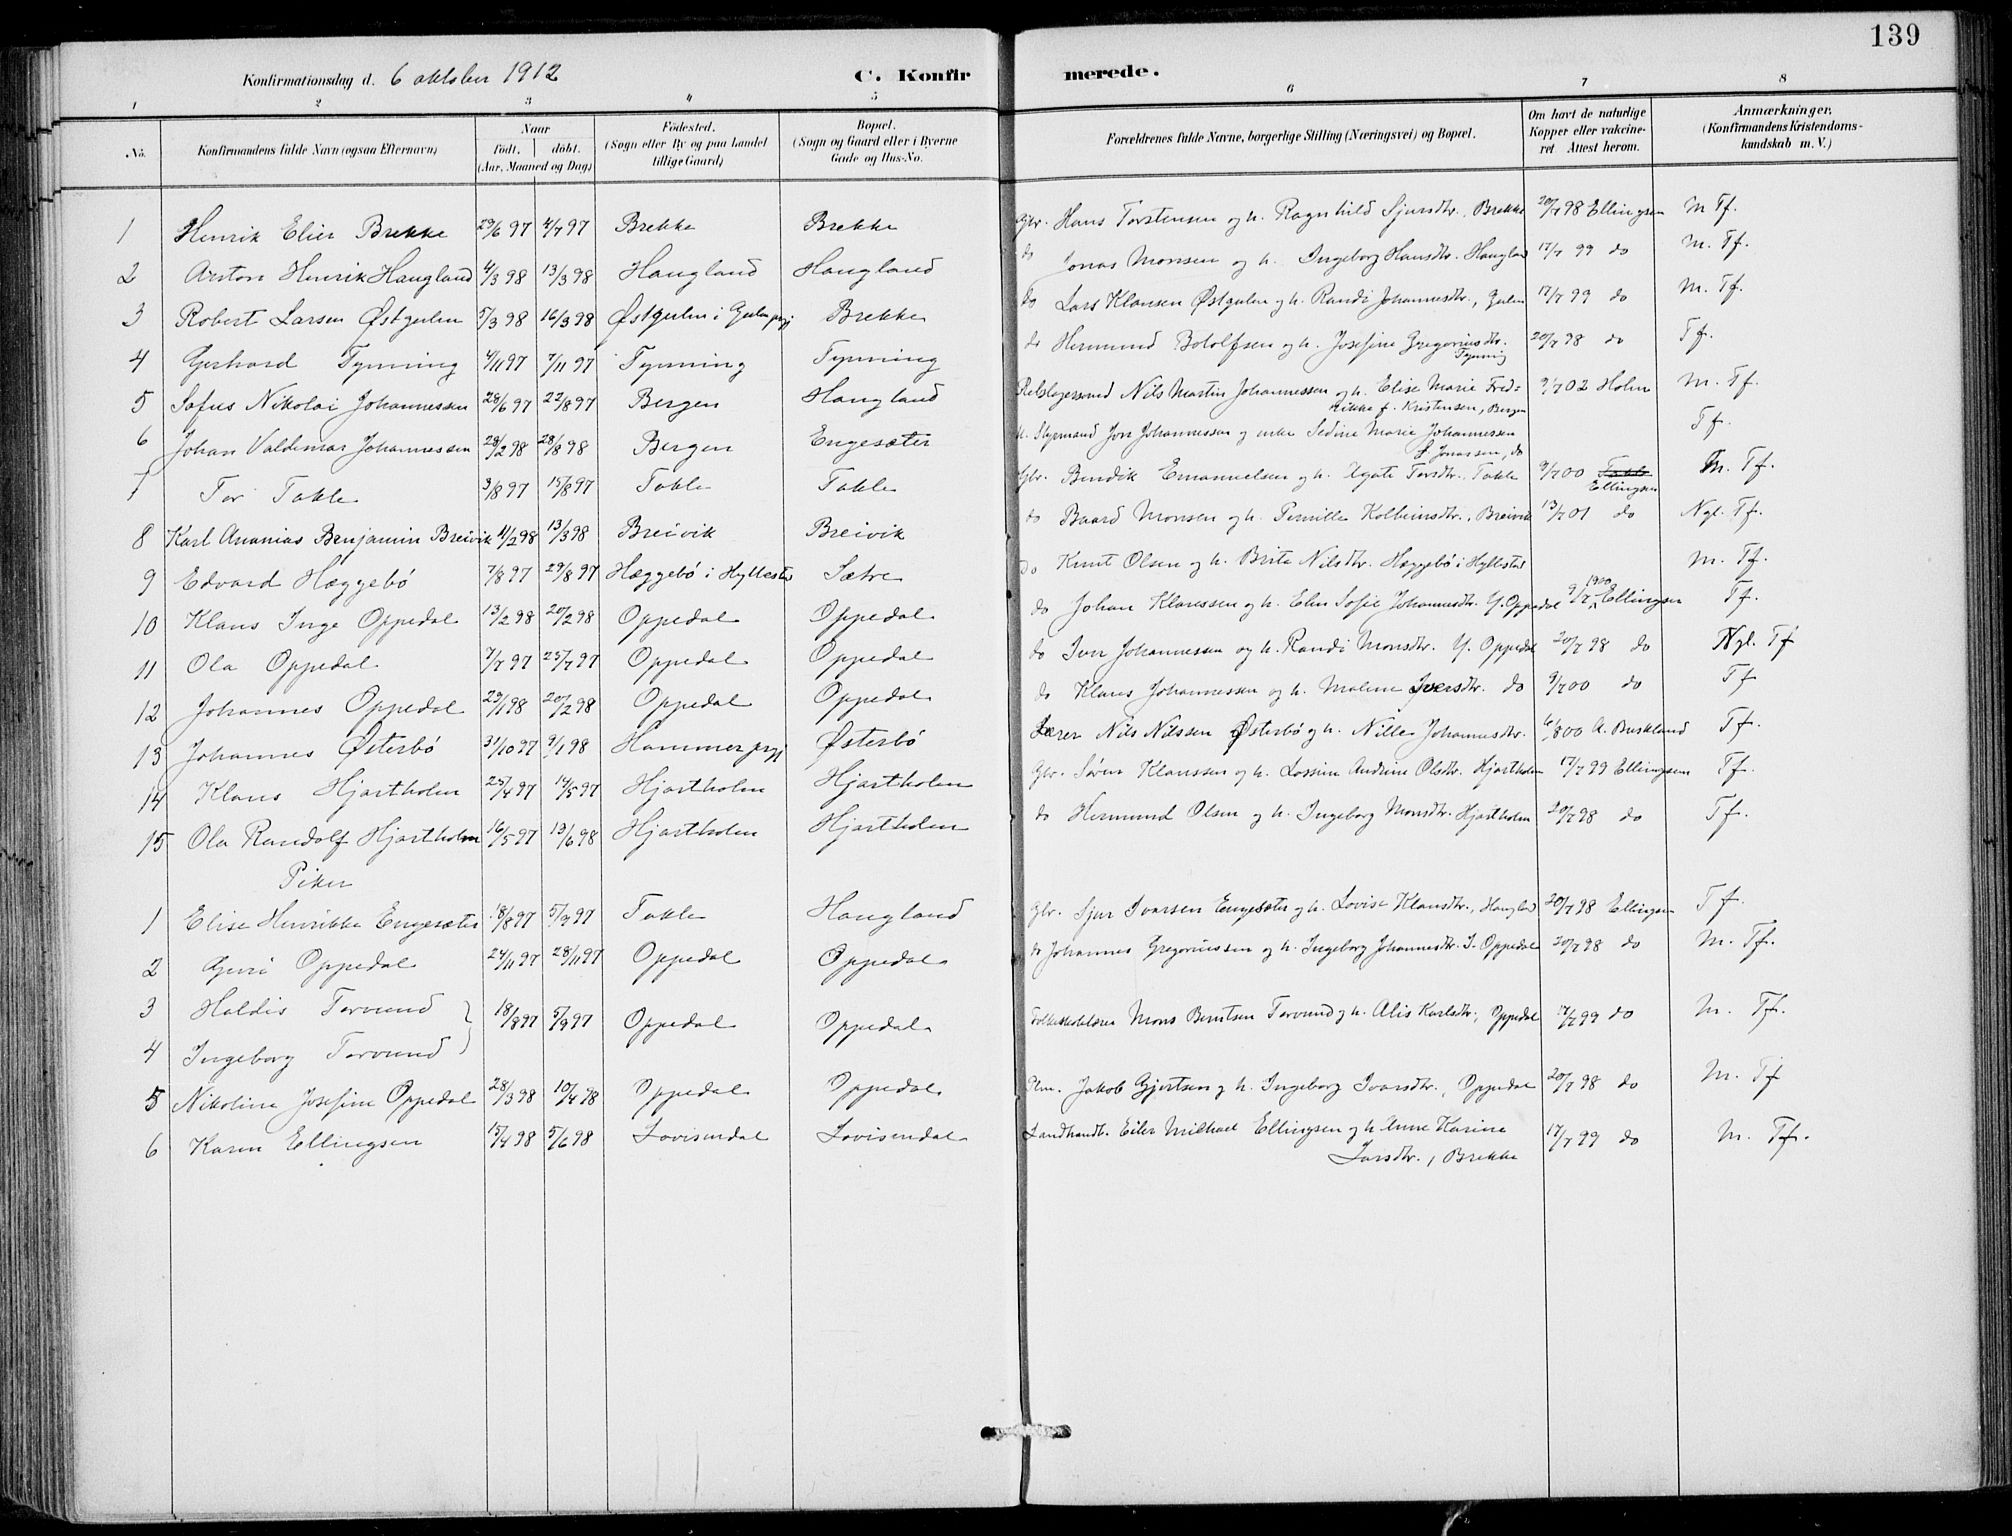 139
Konfirmationsdag d. 6 oktober 1912
C. Konfirmerede.
1 2 3 4 5 6 7 8
No. | Konfirmandens fulde Navn (ogsaa Efternavn) | Naar födt. döbt. (Aar, Maaned og Dag) | Födested. (Sogn eller By og paa Landet tillige Gaard) | Bopæl. (Sogn og Gaard eller i Byerne Gade og Hus-No. | Forældrenes fulde Navne, borgerlige Stilling (Næringsvei) og Bopæl. | Om havt de naturlige Kopper eller vakcineret Attest herom. | Anmærkninger, (Konfirmandens Kristendomskundskab m. V.)
1 Henrik Elier Brekke 29/6 97 4/7 97 Brekke Brekke Gbr. Hans Torstensen og h. Ragnhild Sjursdtr., Brekke 20/7 98 Ellingsen M Tf.
2 Anton Henrik Haugland 4/3 98 13/3 98 Haugland Haugland do Jonas Monsen og h. Ingeborg Hansdtr. Haugland 17/7 99 do M. Tf.
3 Robert Larsen Østgulen 5/3 98 16/3 98 Østgulen i Gulen prgj Brekke do Lars Klausen Østgulen og h. Randi Johannesdtr., Gulen 17/7 99 do M. Tf.
4 Gerhard Tynning 4/11 97 7/11 97 Tynning Tynning do Hermund Bololfsen og h. Josefine Gregoriusdtr. Tynning 20/7 98 do Tf.
5 Sofus Nikolai Johannessen 28/6 97 22/8 97 Bergen Haugland Rebslagersvend Nils Martin Johannessen og h. Elise Marie Fredrikke f. Kristensen, Bergen 9/7 02 Holm M. Tf.
6 Johan Valdemar Johannessen 28/2 98 28/8 98 Bergen Engesæter Styrmand Johannessen og enke Sedine Marie Johannessen f. Jonassen, do Tf.
7 Tor Takle 3/8 97 15/8 97 Takle Takle Gbr. Bendik Emanuelsen og h. Agate Torsdtr. Takle 9/7 00 Ellingsen M. Tf.
8 Karl Ananias Benjamin Breivik 11/2 98 13/3 98 Breivik Breivik do Baard Monsen og h. Pernille Kolbeinsdtr., Breivik 13/7 01 do Ngl. Tf.
9 Edvard Hæggebö 7/8 97 29/8 97 Hæggebö i Hyllestad Sætre do Knut Olsen og h. Brita Nilsdtr. Hæggebö i Hyllestad M. Tf.
10 Klaus Inge Oppedal 13/2 98 20/2 98 Oppedal Oppedal do Johan Klaussen og h. Elin Sofie Johannesdtr. Y. Oppedal 9/7 1900 Ellingsen Tf.
11 Ola Oppedal 7/7 97 25/7 97 Oppedal Oppedal do Iver Johannessen og h. Randi Monsdtr. Y. Oppedal 20/7 98 do Ngl. Tf
12 Johannes Oppedal 29/1 98 20/2 98 Oppedal Oppedal do Klaus Johannessen og h. Malene Iversdtr. do 9/7 00 do Tf
13 Johannes Østerbö 31/10 97 9/1 98 Hammer prgj Østerbö Lærer Nils Nilssen Østerbö og h. Nille Johannesdtr. 6/8 00 A. Buskland Tf.
14 Klaus Hjartholm 25/4 97 14/5 97 Hjartholm Hjartholm Gbr. Sören Klaussen og h. Lossine Andrine Olsdtr. Hjartholm 17/7 99 Ellingsen Tf.
15 Ola Randolf Hjartholm 16/5 97 13/6 98 Hjartholm Hjartholm do Hermund Olsen og h. Ingeborg Monsdtr. Hjartholm 20/7 98 do Tf.
Piker
1 Elise Henrikke Engesæter 18/8 97 5/9 97 Takle Haugland Gbr. Sjur Ivarsen Engesæter og h. Lovise Klausdtr., Haugland 20/7 98 Ellingsen Tf.
2 Guri Oppedal 24/11 97 28/11 97 Oppedal Oppedal do Johannes Gregoriussen og h. Ingeborg Johannesdtr. I. Oppedal 20/7 98 do M. Tf.
3 Haldis Torvund 18/8 97 5/9 97 Oppedal Oppedal Folkeskolelærer Mons Berntsen Torvund og h. Alis Karlsdtr., Oppedal 17/7 99 do M. Tf.
4 Ingeborg Torvund
5 Nikoline Josefine Oppedal 28/3 98 10/4 98 Oppedal Oppedal Plm. Jakob Gjertsen og h. Ingeborg Ivarsdtr., Oppedal 20/7 98 do M. Tf
6 Karen Ellingsen 15/4 98 5/6 98 Lovisendal Lovisendal Landhandl. Eiler Michael Ellingsen og h. Anne Karine Larsdtr., Brekke 17/7 99 do M. Tf.